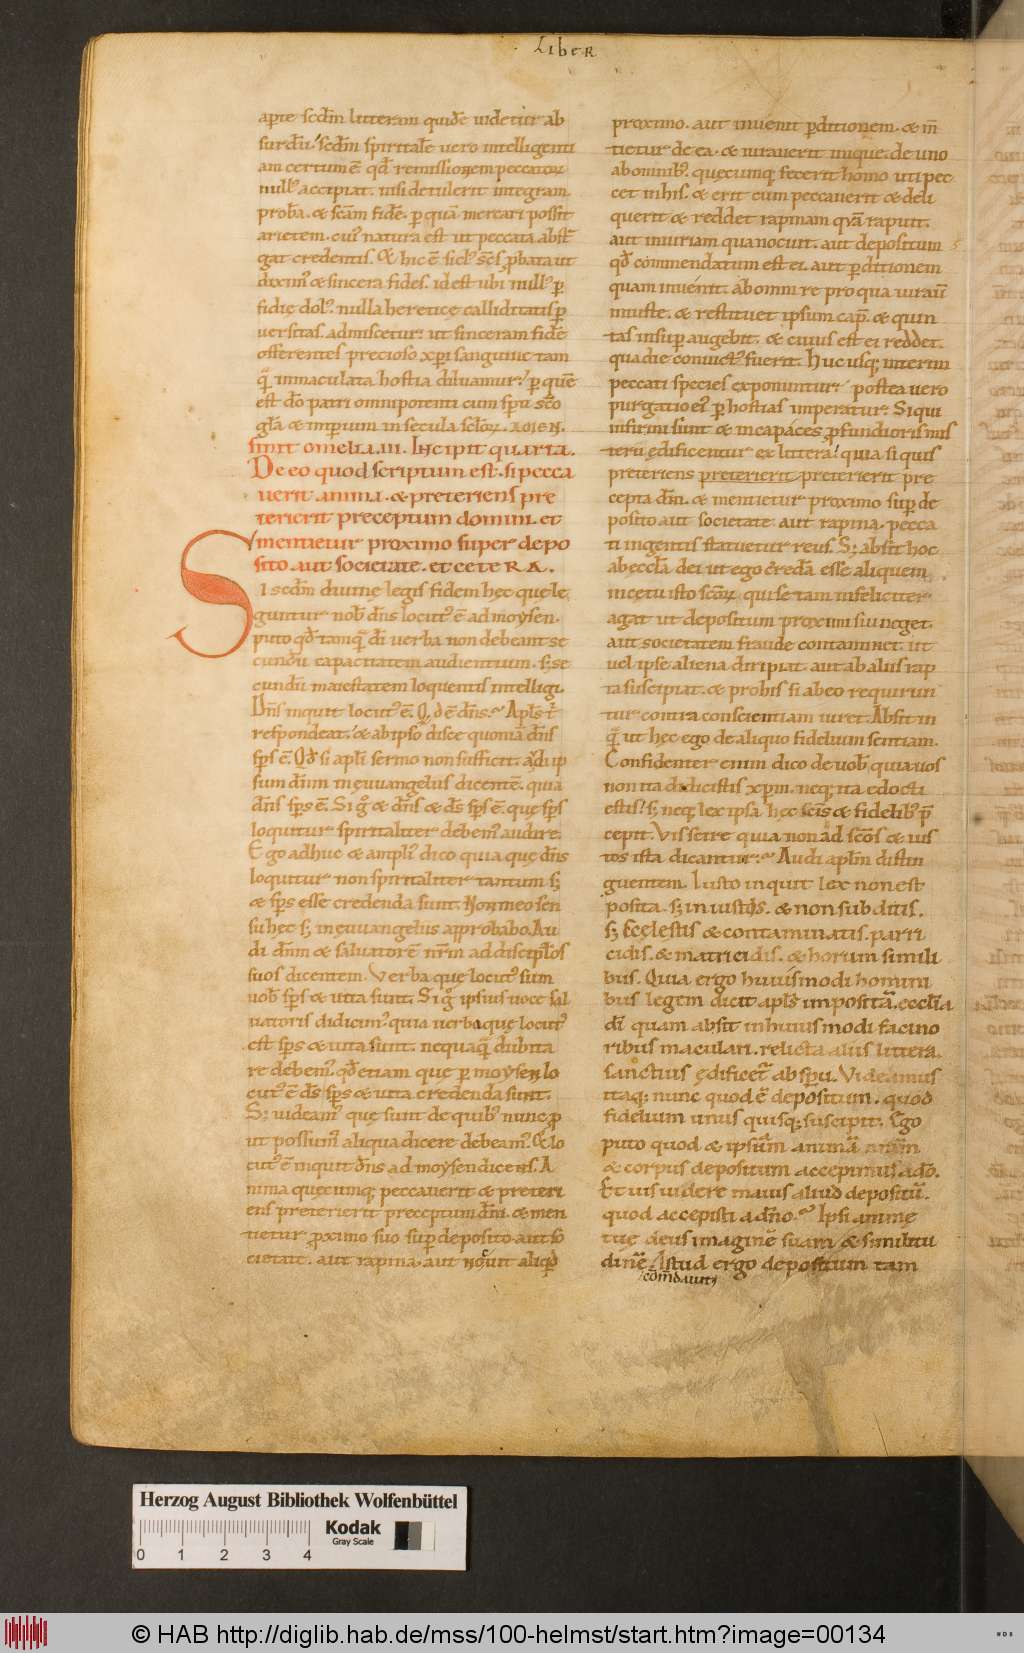 Liber
aperte scdm litteram quide uidetur ab
surdu. scdm spiritale uero intelligenti
am certum e. qd remissionem peccatoꝝ
null' accipiat. nisi detulerit integram.
proba. & scam fide. p qua mercari possit
arietem. cui' natura est ut peccata abster
gat credentis. & hic e sicl' scs pbata ut
dixim' & sincera fides. id est ubi null' p
fidie dol'. nulla heretice calliditatis p
uersitas. admiscetur. ut sinceram fide
offerentes precioso xpi sanguine tam
q immaculata hostia diluamur. p que
est do patri omnipotenti cum spu sco
gla & imperium in secula scloꝝ. AMEN.
finit omelia .iii. Incipit quarta.
De eo quod scriptum est. si pecca
uerit anima. & preteriens pre
terierit preceptum domini. et
mentietur proximo super depo
sito aut societate. et ceteRA.
Si scdm diuine legis fidem hec que le
guntur nob dns locut' e ad moysen.
puto qd tamq di uerba non debeant se
cundu capacitatem audientium. s; se
cundu maiestatem loquentis intelligi.
Dns inquit locut' e. Q, d e dns. Apls t
respondeat. & ab ipso disce quonia dns
sps e. Qd si apli sermo non sufficit. adi ip
sum dnm in euuangeliis dicente. quia
ds sps e. Si g & dns & ds sps e. que sps
loquitur spiritaliter debem' audire.
Ego adhuc & ampli' dico quia que dns
loquitur non spiritaliter tantum s;
& sps esse credenda sunt. Non meo sen
su hec s; in euuangeliis approbabo. Au
di dnm & saluatore nrm ad discipulos
suos dicentem. Verba que locut' sum
uob sps & uita sunt. Si g ipsius uoce sal
uatoris didicim' quia uerba que locut'
est sps & uita sunt. nequaq dubita
re debem'. qd etiam que p moysen lo
cut' e ds sps & uita credenda sunt.
S; uideam' que sunt de quib' nunc p
ut possum' aliqua dicere debeam'. & lo
cut' e inquit dns ad moysen dicens. A
nima quecumq; peccauerit & preteri
ens preterierit preceptum dni. & men
tietur proximo suo sup deposito aut so
cietate. aut rapina. aut nocuit aliqd
proximo. aut inuenit pditionem. & m
tietur de ea. & iurauerit inique. de uno
ab omnib'. quecumq; fecerit homo uti pec
cet in his. & erit cum peccauerit & deli
querit & reddet rapinam qua rapuit.
aut iniuriam qua nocuit. aut depositum
qd commendatum est ei. aut pditionem
quam inuenit. ab omni re pro qua iurau
iniuste. & restituet ipsum cap. & quin
tas insup augebit. & cuius est ei reddet.
qua die conuict' fuerit. Huc usq; interim
peccati species exponuntur. postea uero
purgatio ei' p hostias imperatur. Si qui
infirmi sunt & incapaces pfundioris mis
terii edificentur ex littera. quia si quis
preteriens preterierit preterierit pre
cepta dni. & mentietur proximo sup de
posito aut societate aut rapina. pecca
ti ingentis statuetur reus. S; absit hoc
ab eccla dei ut ego creda esse aliquem
in cetu isto scoꝝ. qui se tam infeliciter
agat ut depositum proximi sui neget.
aut societatem fraude contaminet. ut
uel ipse aliena diripiat. aut ab aliis rap
ta suscipiat. & pro his si ab eo requirun
tur contra conscientiam iuret. Absit in
q ut hec ego de aliquo fidelium sentiam.
Confidenter enim dico de uob. quia uos
non ita didicistis xpm. neq; ita edocti
estis. s; neq; lex ipsa hec scis & fidelib' p
cepit. Vis scire quia non ad scos & ius
tos ista dicantur. Audi aplm distin
guentem. Iusto inquit lex non est
posita. s; iniustis. & non subditis.
s; scelestis & contaminatis. parri
cidis. & matricidis. & horum simili
bus. Quia ergo huiusmodi homini
bus legem dicit apls imposita. ecclia
di quam absit in huiusmodi facino
ribus maculari. relicta aliis littera.
sanctius edificet ab spu. Videamus
itaq; nunc quod e depositum. quod
fidelium unus quisq; suscipit. Ego
puto quod & ipsum anima nram
& corpus depositum accepimus a do.
Et uis uidere maius aliud depositu.
quod accepisti a dno. Ipsi anime
tue deus imagine suam & similitu
dine Istud ergo depositum tam
comdauit
Herzog August Bibliothek Wolfenbüttel
Kodak
Gray Scale
0 1 2 3 4
© HAB http://diglib.hab.de/mss/100-helmst/start.htm?image=00134